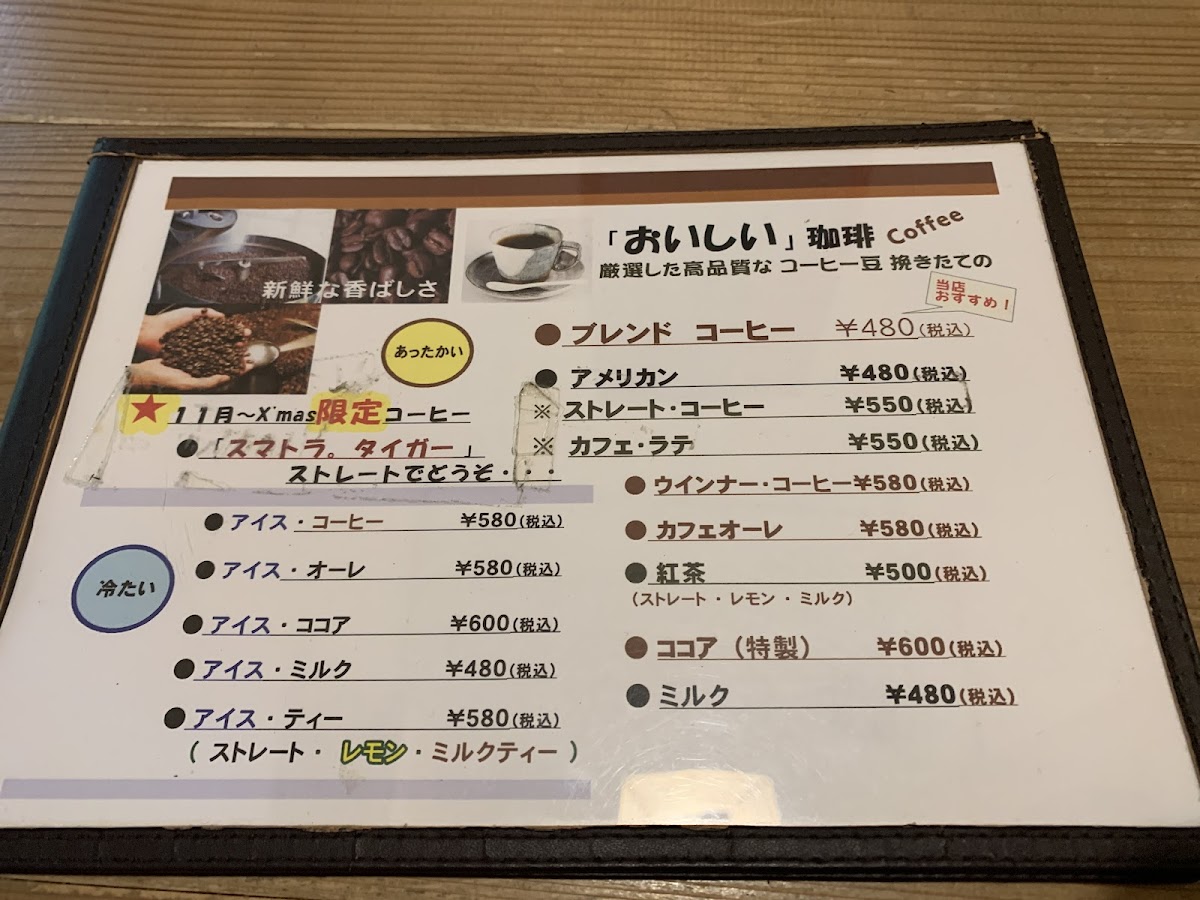 新鮮な香ばしさ
「おいしい」珈琲 Coffee
厳選した高品質な コーヒー豆 挽きたての
当店
おすすめ！
あったかい
●ブレンド コーヒー ¥480(税込)
●アメリカン ¥480(税込)
※ストレート・コーヒー ¥550(税込)
※カフェ・ラテ ¥550(税込)
●ウインナー・コーヒー¥580(税込)
●カフェオーレ ¥580(税込)
●紅茶 ¥500(税込)
(ストレート・レモン・ミルク)
●ココア（特製） ¥600(税込)
●ミルク ¥480(税込)
★11月～X'mas限定コーヒー
●「スマトラ。タイガー」
ストレートでどうぞ・・・
冷たい
●アイス・コーヒー ¥580(税込)
●アイス・オーレ ¥580(税込)
●アイス・ココア ¥600(税込)
●アイス・ミルク ¥480(税込)
●アイス・ティー ¥580(税込)
(ストレート・レモン・ミルクティー)